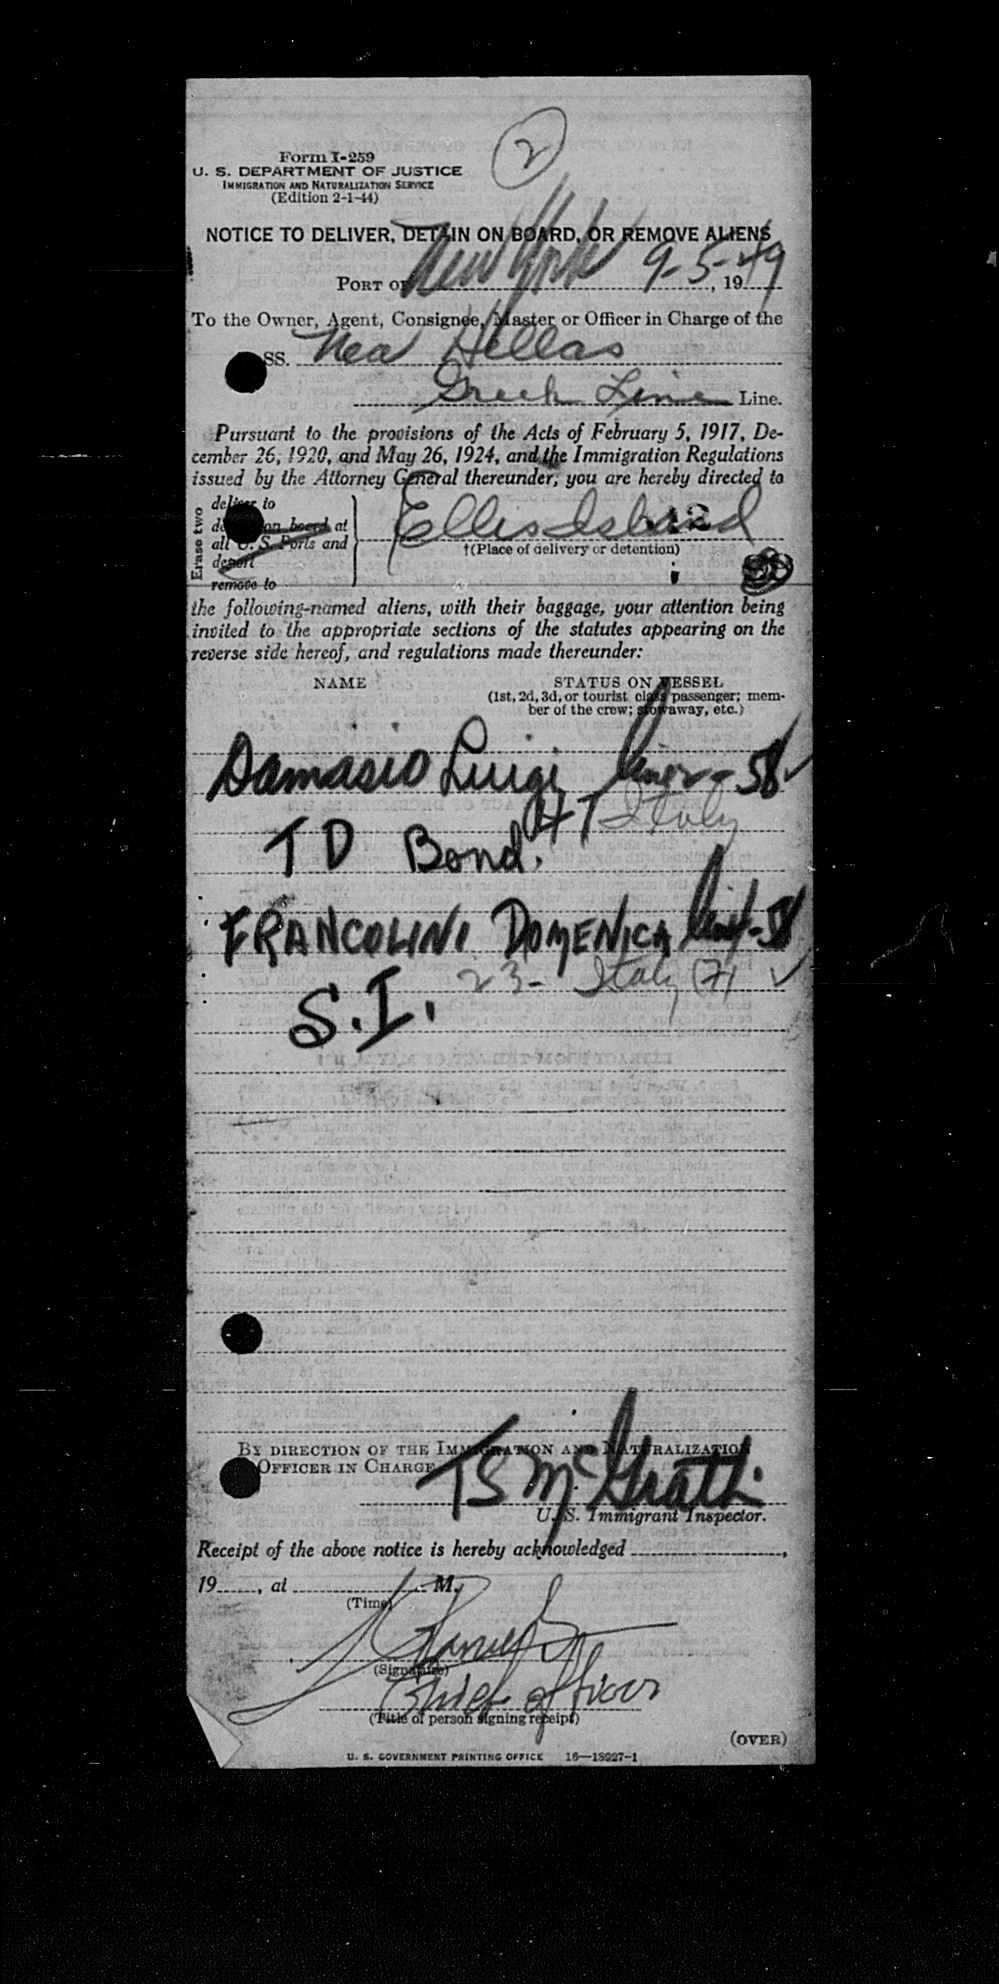 2
Form I-259
U. S. DEPARTMENT OF JUSTICE
IMMIGRATION AND NATURALIZATION SERVICE
(Edition 2-1-44)
NOTICE TO DELIVER, DETAIN ON BOARD, OR REMOVE ALIENS
PORT OF New York 9-5-, 1949
To the Owner, Agent, Consignee, Master or Officer in Charge of the
SS. Nea Hellas
Greek Line Line.
Pursuant to the provisions of the Acts of February 5, 1917, De-
cember 26, 1920, and May 26, 1924, and the Immigration Regulations
issued by the Attorney General thereunder, you are hereby directed to
Erase two
deliver to
on board at
all U. S. Ports and
deport
remove to
Ellis Island
†(Place of delivery or detention)
the following-named aliens, with their baggage, your attention being
invited to the appropriate sections of the statutes appearing on the
reverse side hereof, and regulations made thereunder:
NAME STATUS ON VESSEL
(1st, 2d, 3d, or tourist class passenger; mem-
ber of the crew; stowaway, etc.)
Damasio Luigi 58
47 Italy
T D Bond.
FRANCOLINI DOMENICA
23- Italy (7)
S.I.
BY DIRECTION OF THE IMMIGRATION AND NATURALIZATION
OFFICER IN CHARGE
TS McGrath
U. S. Immigrant Inspector.
Receipt of the above notice is hereby acknowledged ,
19 , at M.
(Time)
(Signature)
Chief officer
(Title of person signing receipt)
(OVER)
U. S. GOVERNMENT PRINTING OFFICE 16—18927-1